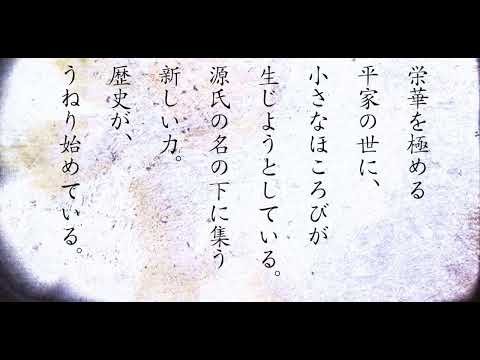 栄華を極める
平家の世に、
小さなほころびが
生じようとしている。
源氏の名の下に集う
新しい力。
歴史が、
うねり始めている。